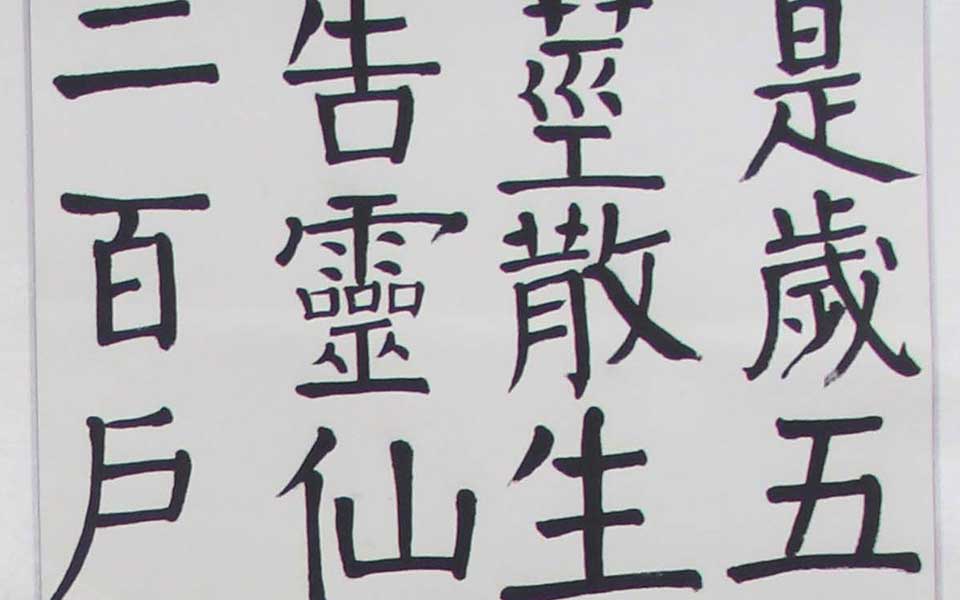 是歲五
莖散生
告靈仙
二百戶